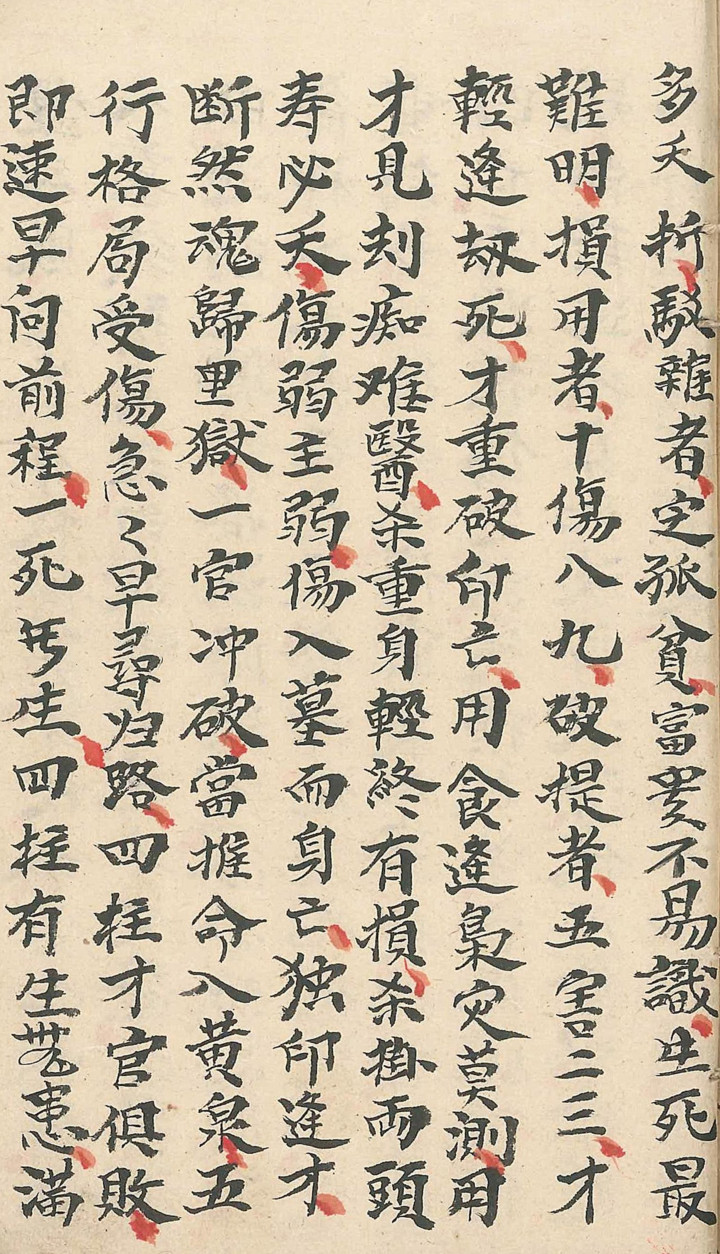 多夭折駁雜者定孤貧富贵不易識生死最
難明損用者十傷八九破提者五害二三才
輕逢刼死才重破印亡用食逢梟灾莫測用
才見刦痴难醫杀重身輕終有損杀掛両頭
寿必夭傷弱主弱傷入墓而身亡独印逢才
断然魂歸里獄一官冲破當推命入黄泉五
行格局受傷急々早尋归路四柱才官俱敗
即速早问前程一死字生四柱有生無患滿